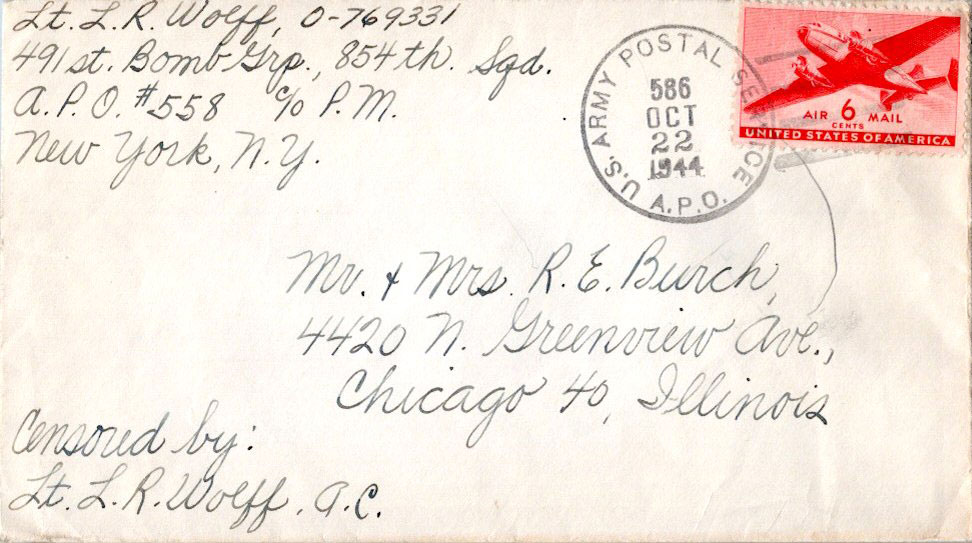 Lt. L. R. Wolff, O-769331
491st. Bomb Grp., 854th. Sqd.
A.P.O. #558 c/o P.M.
New York, N.Y.
U.S. ARMY POSTAL SERVICE
586
OCT
22
1944
A.P.O.
AIR 6 MAIL
CENTS
UNITED STATES OF AMERICA
Mr. & Mrs. R. E. Burch,
4420 N. Greenview Ave.,
Chicago 40, Illinois
Censored by:
Lt. L. R. Wolff, A.C.